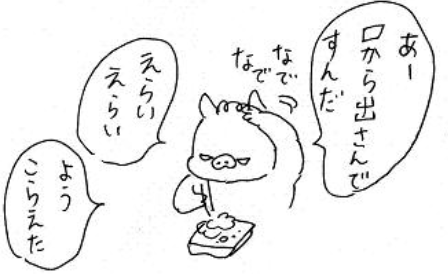 あー
口から出さんで
すんだ
なで
なで
えらい
えらい
よう
こらえた